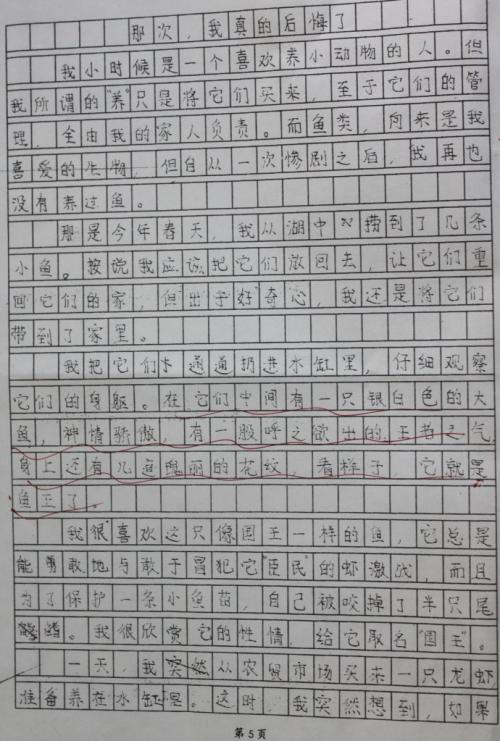 那次，我真的后悔了
我小时候是一个喜欢养小动物的人。但
我所谓的“养”只是将它们买来，至于它们的管
理，全由我的家人负责。而鱼类，向来是我
喜爱的生物，但自从一次惨剧之后，我再也
没有养过鱼。
那是今年春天，我从湖中捞到了几条
小鱼。按说我应该把它们放回去，让它们重
回它们的家，但出于好奇心，我还是将它们
带到了家里。
我把它们通通扔进水缸里，仔细观察
它们的身躯。在它们中间有一只银白色的大
鱼，神情骄傲，有一股呼之欲出的王者之气，
身上还有几道瑰丽的花纹，看样子，它就是
鱼王了。
我很喜欢这只像国王一样的鱼，它总是
能勇敢地与敢于冒犯它“臣民”的虾激战，而且
为了保护一条小鱼苗，自己被咬掉了半只尾
鳍。我很欣赏它的性情，给它取名“国王”。
一天，我突然从农贸市场买来一只龙虾
准备养在水缸里。这时，我突然想到，如果
第5页